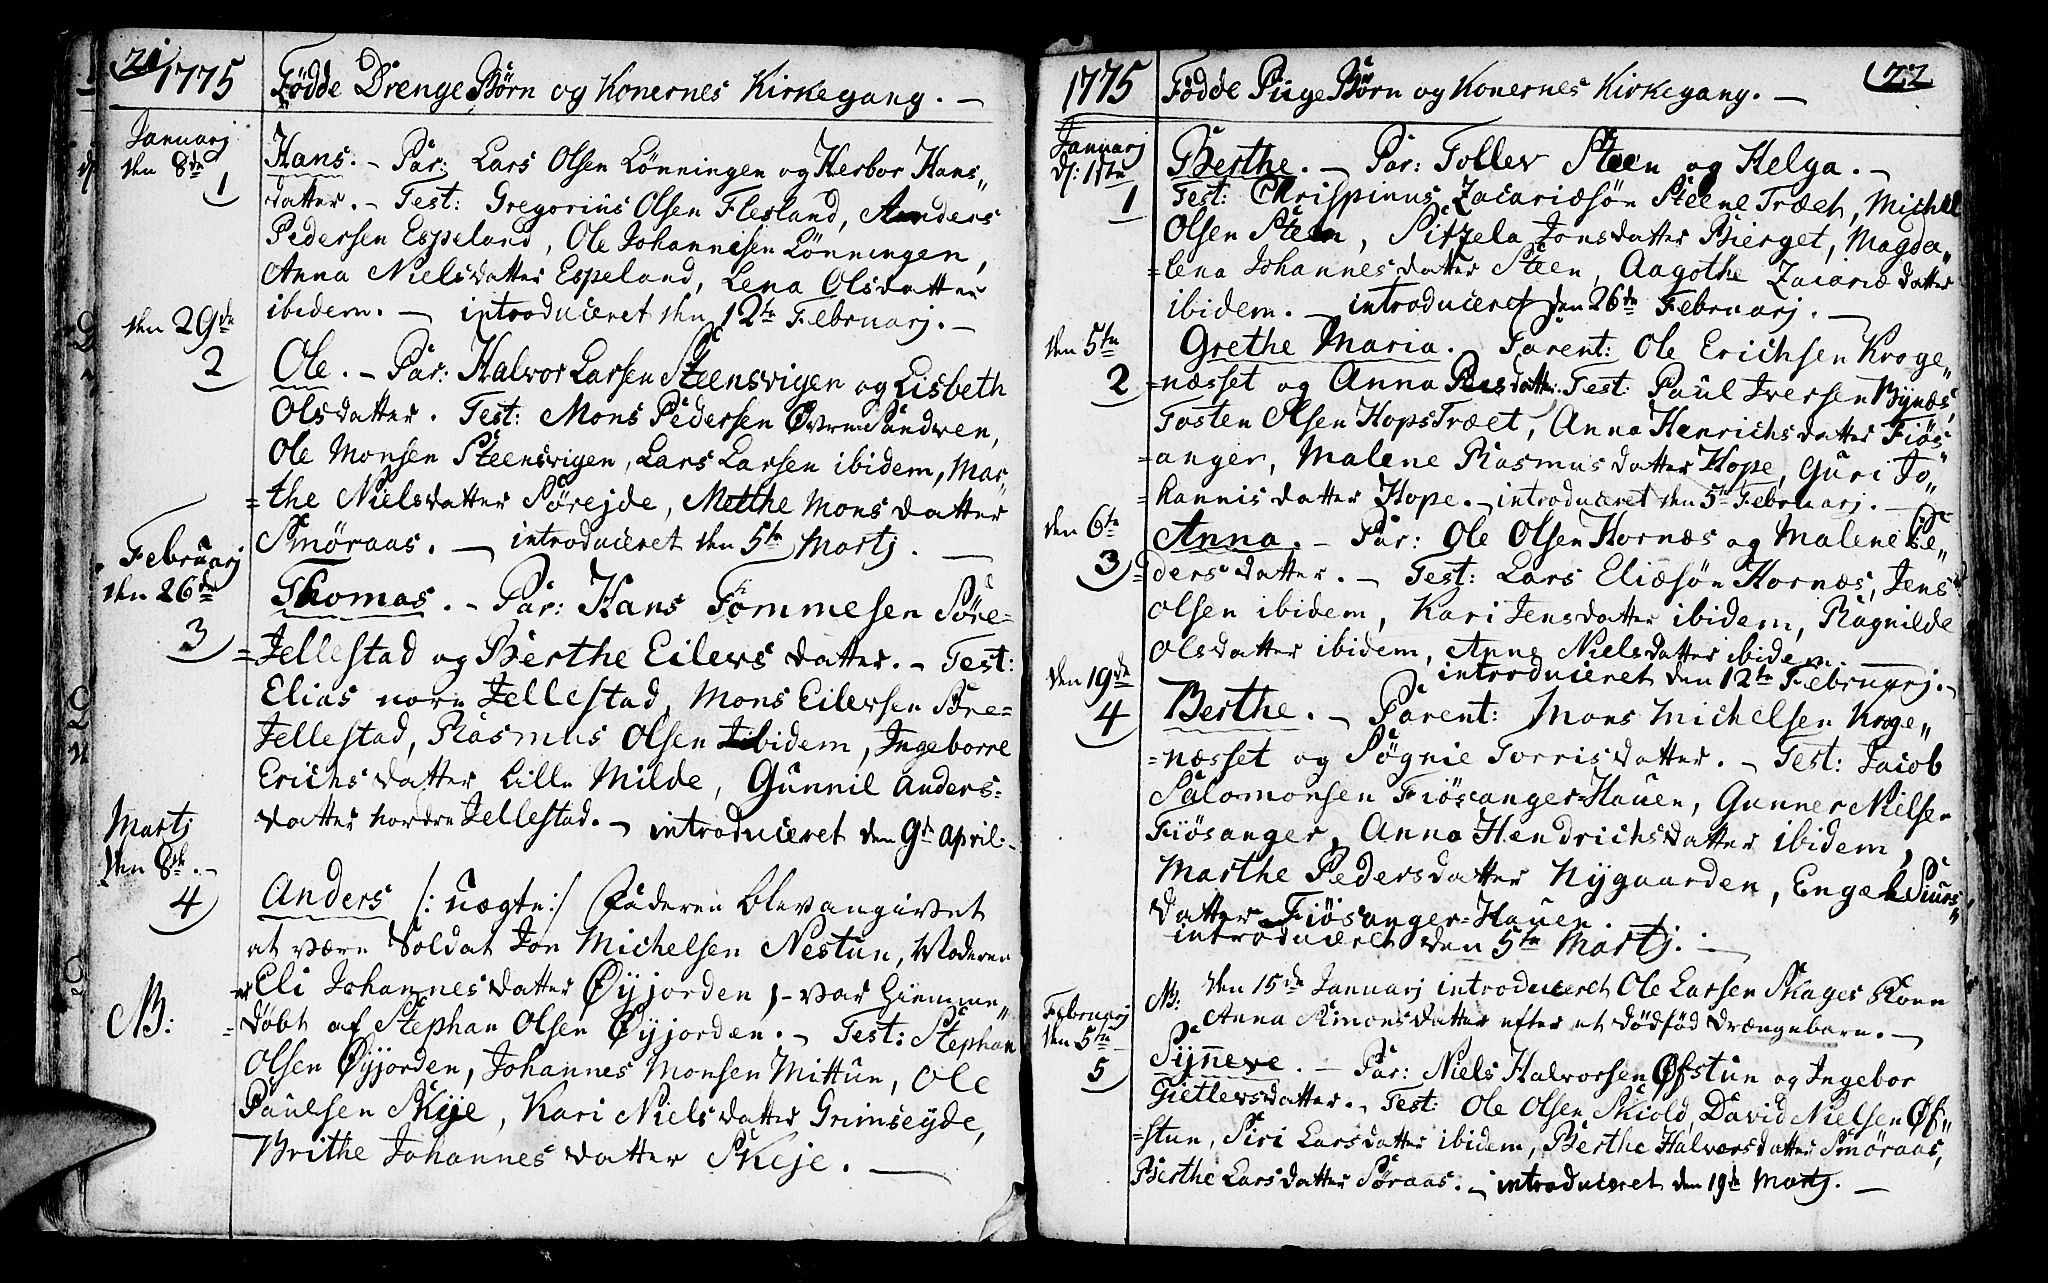 21
1775 Födde Drenge Börn og Konernes Kirkegang. -
Januarj
den 8de
1
Hans. - Par: Lars Olsen Lönningen og Herbor Hans„
datter. - Test: Gregorius Olsen Flesland, Anders
Pedersen Espeland, Ole Johannisen Lönningen,
Anna Nielsdatter Espeland, Lena Olsdatter
ibidem. - introduceret den 12te Februarj. -
den 29de
2
Ole. - Par: Halvor Larsen Steensvigen og Lisbeth
Olsdatter. Test: Mons Pedersen Øvre Sandven,
Ole Monsen Steensvigen, Lars Larsen ibidem, Mar„
=the Nielsdatter Sörejde, Metthe Monsdatter
Smöraas. - introduceret den 5te Martj. -
Februarj
den 26de
3
Thomas. - Par: Hans Tommesen Söre=
=Jellestad og Berthe Eilersdatter. - Test:
Elias nore Jellestad, Mons Eilersen Söre=
Jellestad, Rasmus Olsen ibidem, Ingeborre
Erichsdatter Lille Milde, Gunnil Anders=
datter nordre Jellestad. - introduceret den 9de April. -
Martj
den 8de. -
4
Anders /: uægte :/ Faderen blev angivet
at være Soldat Jon Michelsen Nestun, Moderen
er Eli Johannesdatter Øyjorden, - var hiemme„
NB: =döbt af Stephan Olsen Øyjorden. - Test: Stephan
Olsen Øyjorden, Johannes Monsen Mittun, Ole
Paulsen Skeje, Kari Nielsdatter Grimseyde,
Brithe Johannesdatter Skeje. -
22
1775 Födde Pige Börn og Konernes Kirkegang. -
Januarj
d: 1ste
1
Berthe. - Par: Tollev Steen og Helga. -
Test: Chrispinus Zacariæsön Steene Træet, Michel
Olsen Steen, Sitzela Jonsdatter Bierget, Magda„
=lena Johannesdatter Steen, Aagothe Zacariædatter
ibidem. - introduceret den 26de Februarj. -
den 5te
2
Grethe Maria. Parent: Ole Erichsen Kroge„
=næsset og Anna datter. Test: Paul Iversen Bynes,
Tosten Olsen Hops Træet, Anna Henrichsdatter Fiös„
=anger, Malene Rasmusdatter Hope, Guri Jo„
=hannisdatter Hope. - introduceret den 5te Februarj. -
den 6te
3
Anna. - Par: Ole Olsen Hornæs og Malene Pe„
=dersdatter. - Test: Lars Eliæsön Hornæs, Jens
Olsen ibidem, Kari Jensdatter ibidem, Ragnilde
Olsdatter ibidem, Anna Nielsdatter ibidem.
introduceret den 12te Februarj. -
den 19de
4
Berthe. - Parent: Mons Michelsen Kroge„
=næsset og Sögnie Torrisdatter. - Test: Jacob
Salomonsen Fiösanger=Hauen, Gunner Nielsen
Fiösanger, Anna Hendrichsdatter ibidem,
Marthe Pedersdatter Nygaarden, Engæl Siurs„
datter Fiösanger=Hauen.
introduceret den 5te Martj. -
NB: den 15de Januarj introduceret Ole Larsen Skages Kone
Anna Simonsdatter efter et dödföd drængebarn. -
Februarj
den 5te
5
Syneve. - Par: Niels Halvorsen Øfstun og Ingebor
Gietlersdatter. - Test: Ole Olsen Skiold, David Nielsen Øf„
=stun, Siri Larsdatter ibidem, Berthe Halvorsdatter Smöraas,
Berthe Larsdatter Söraas. - introduceret den 19de Martj. -